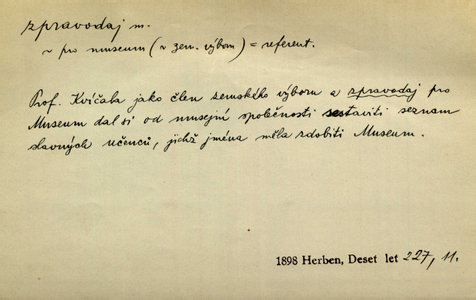 zpravodaj m.
~ pro museum (v zem. výboru) = referent.
Prof. Kvíčala jako člen zemského výboru a zpravodaj pro
Museum dal si od musejní společnosti sestaviti seznam
slavných učenců, jichž jména měla zdobiti Museum.
1898 Herben, Deset let 227, 11.